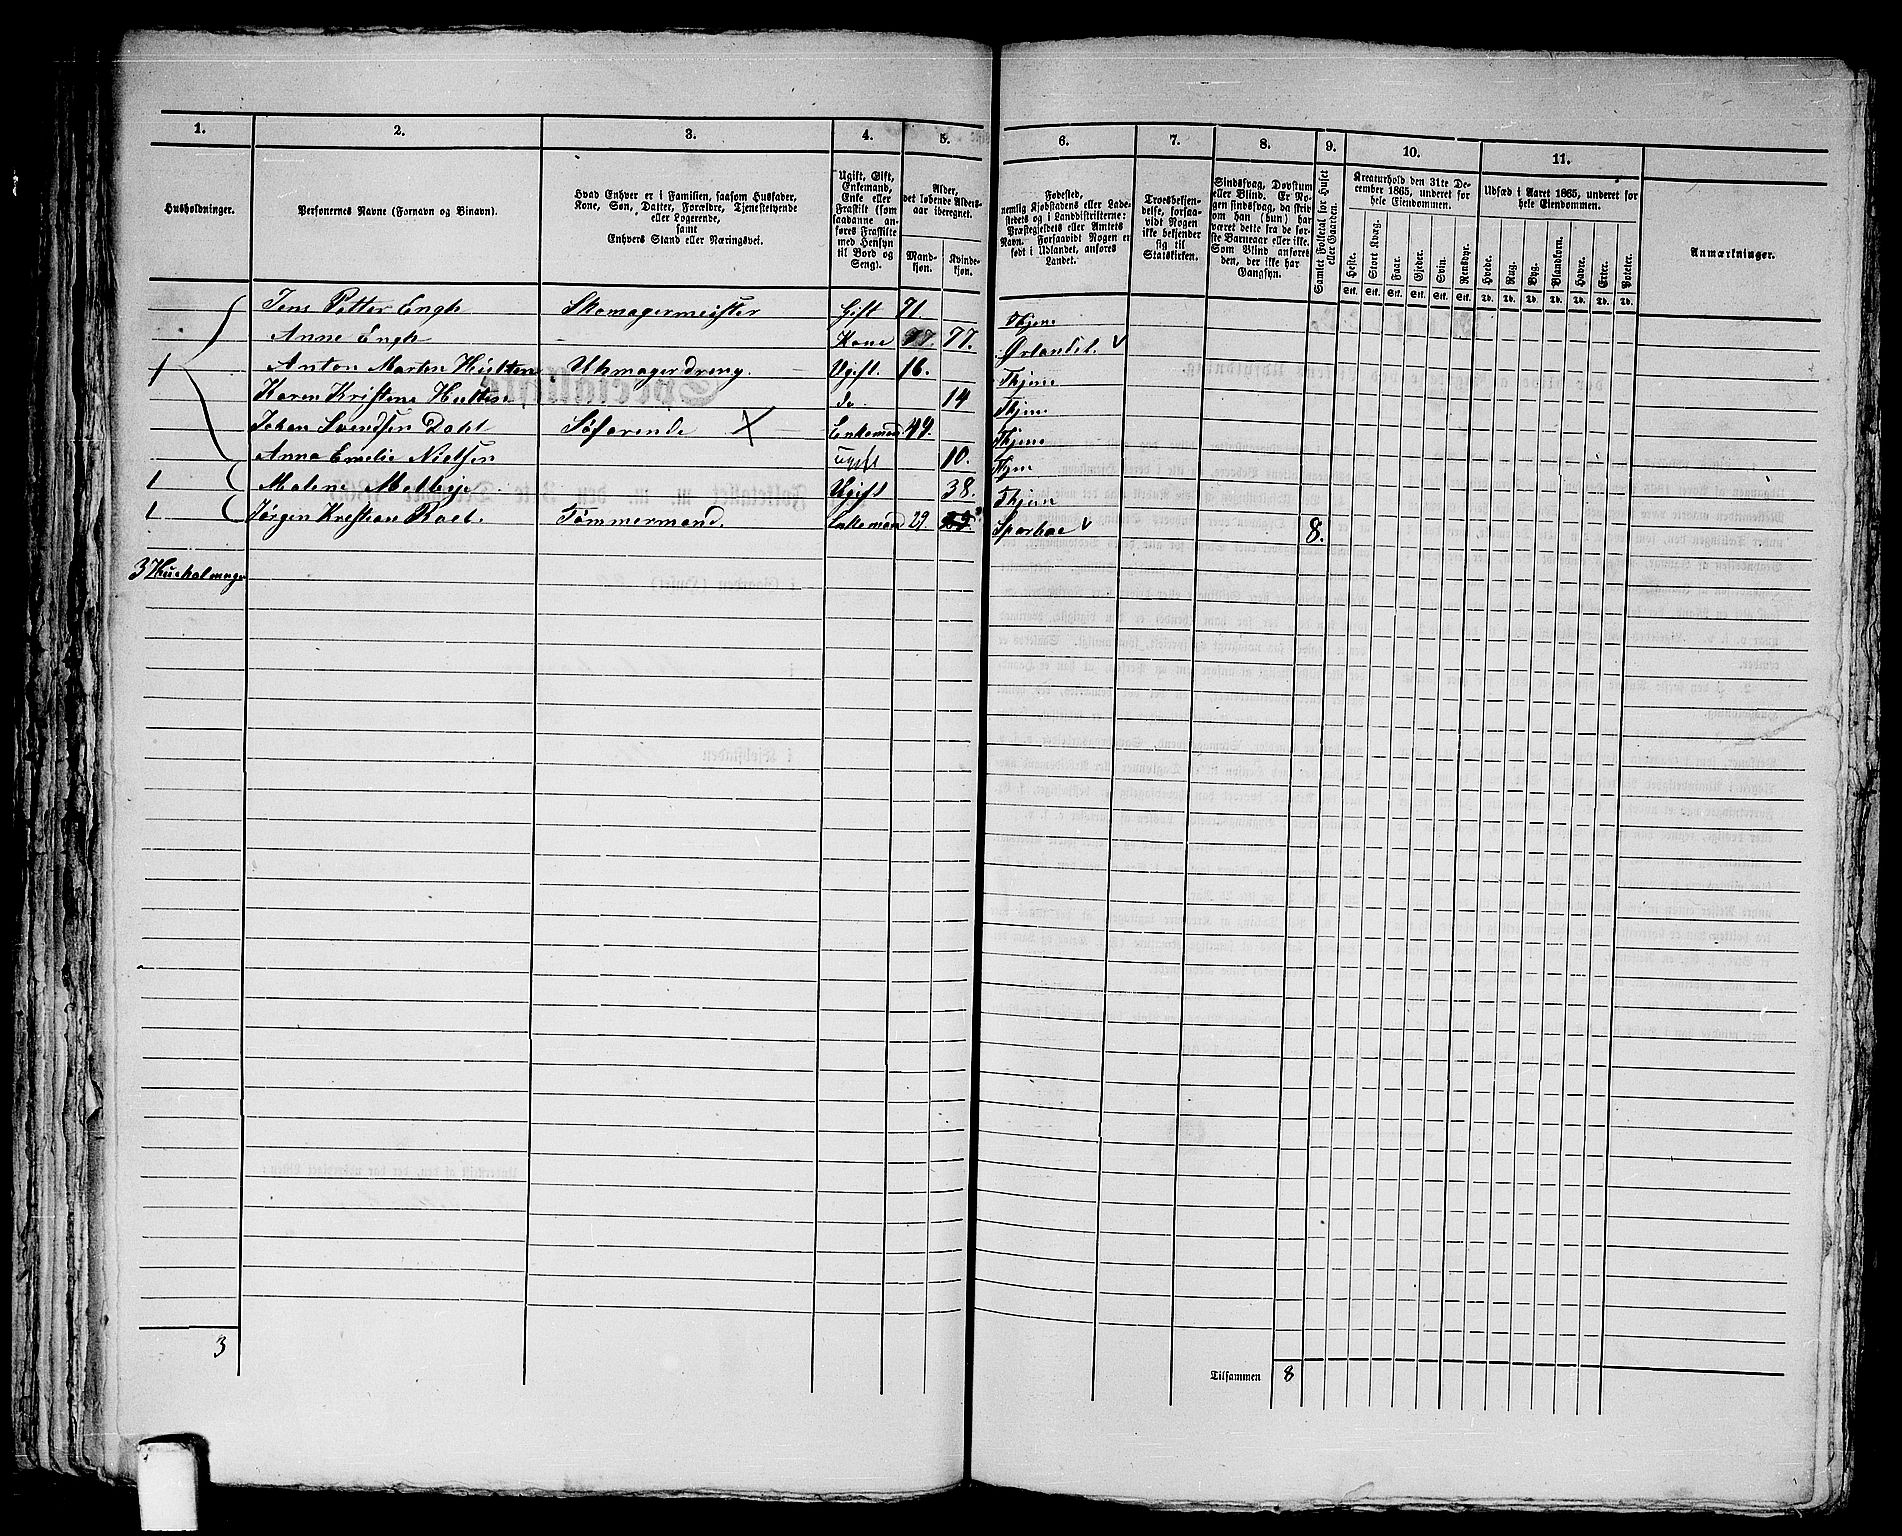 1. 2. 3. 4. 5. 6. 7. 8. 9. 10. 11.
Husholdninger.
Personernes Navne (Fornavn og Binavn).
Hvad Enhver er i Familien, saasom Husfader,
Kone, Søn, Datter, Forældre, Tjenestetyende
eller Logerende,
samt
Enhvers Stand eller Næringsvei.
Ugift, Gift,
Enkemand,
Enke eller
Fraskilt (som
saadanne an-
føres Fraskilte
med Hensyn
til Bord og
Seng).
Alder,
det løbende Alders-
aar iberegnet.
Mand-
kjøn.
Kvinde-
kjøn.
Fødested,
nemlig Kjøbstadens eller Lade-
stedets og i Landdistrikterne:
Præstegjeldets eller Amtets
Navn. Forsaavidt Nogen er
født i Udlandet, anføres
Landet.
Troesbekjen-
delse, forsaa-
vidt Nogen
ikke bekjender
sig til
Statskirken.
Sindssvag, Døvstum
eller Blind. Er No-
gen sindssvag, da skriv
om han (hun) har
været dette fra de før-
ste Barneaar eller ikke.
Som Blind anføres
den, der ikke har
Gangsyn.
Samlet Folketal for Huset
eller Gaarden.
Kreaturhold den 31te De-
cember 1865, underet for
hele Eiendommen.
Heste. Stort Kvæg. Faar. Gjeder. Svin. Rensdyr.
Stk. Stk. Stk. Stk. Stk. Stk.
Udsæd i Aaret 1865, underet for
hele Eiendommen.
Hvede. Rug. Byg. Blandkorn. Havre. Erter. Poteter.
Td. Td. Td. Td. Td. Td. Td.
Anmærkninger.
Jens Petter Engh Skomagermeister Gift 71. Thjem
Anne Engh Kone 77. Ørlandet. V
1 Anton Martin Hultten Uhrmagerdreng. Ugift. 16. Thjem
Karen Kristene Hultten do 14 Thjem
Johan Svendsen Dahl Søfarende X Enkemand 49. Thjem
Anna Emelie Nielsen Ugift 10. Thjem
1 Malene Melbye Ugift 38. Thjem
1 Jørgen Kristian Enkemand 29. Tømmermand. Sparboe V 8.
3 Husholdninger
3
Tilsammen 8